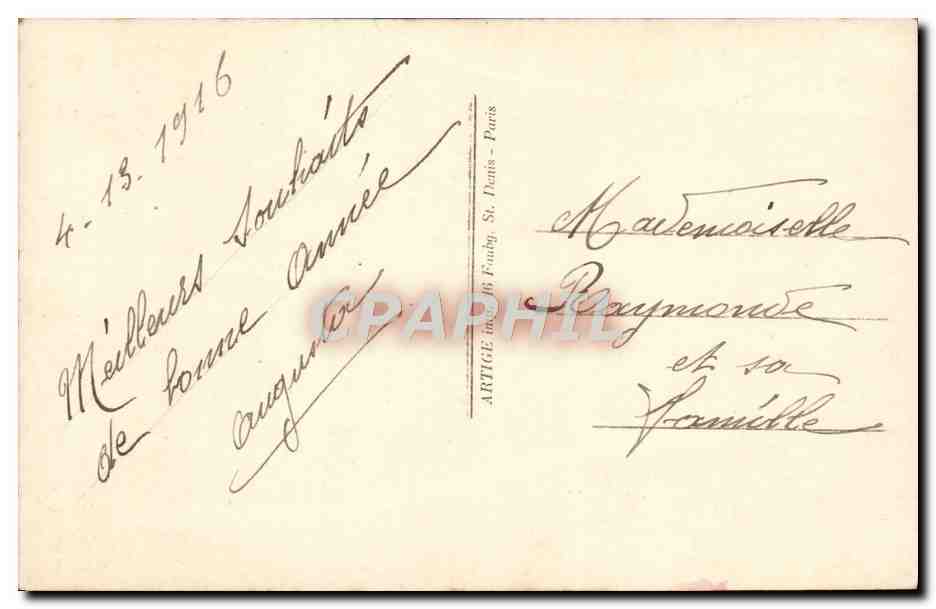 4-13-1916
Meilleurs Souhaits
de bonne Année
ARTIGE imp. 16 Faubg. St. Denis - Paris
Mademoiselle
Raymonde
et sa
famille
CPAPHIL